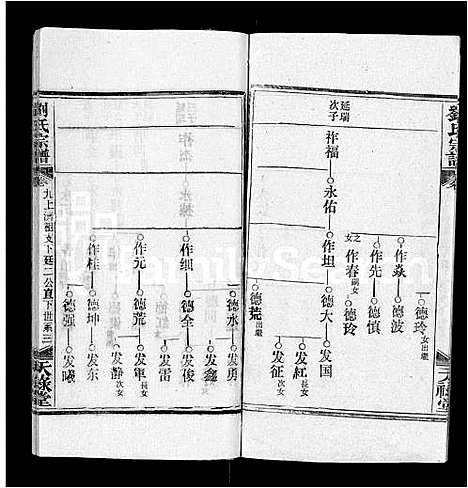 劉氏宗譜
延瑞
次子
祚福
永佑
作坦
德大
发国
发紅 長女
发征
德荒 出繼
作焱
德波
作先
德慎
之女
作春 嗣女
德玲
德玲 女出繼
天祿堂
劉氏宗譜
卷九上
濟祖支下廷二公直下世系
三
德永
发勇
发鑫
作细
德全
发俊
发雷
作元
德荒
发軍 長女
发静 次女
作桂
德坤
发东
德强
发曦
天祿堂
FamilySearch